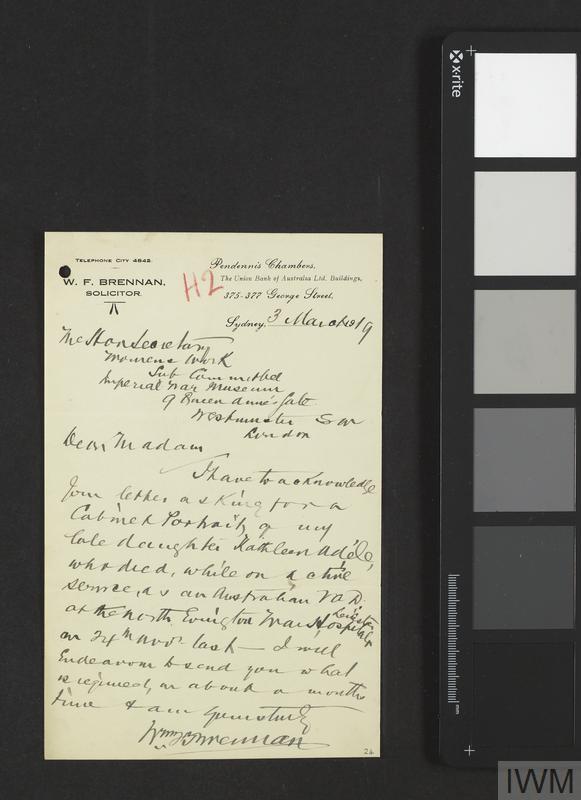 TELEPHONE CITY 4842.
W. F. BRENNAN,
SOLICITOR.
H2
Pendennis Chambers,
The Union Bank of Australia Ltd. Buildings,
375-377 George Street,
Sydney, 3 March 1919
The Hon Secretary
Womens Work
Sub Committee
Imperial War Museum
9 Queen Anne's Gate
Westminster S W
London
Dear Madam
I have to acknowledge
your letter asking for a
Cabinet Portrait of my
late daughter Kathleen Adéle,
who died, while on active
service, as an Australian VAD.
at the North Evington War Hospital, Leicester
on 24th Novr last — I will
Endeavour to send you what
is required, in about a months
time & am yours truly
Wm F Brennan
24
x-rite
mm
IWM